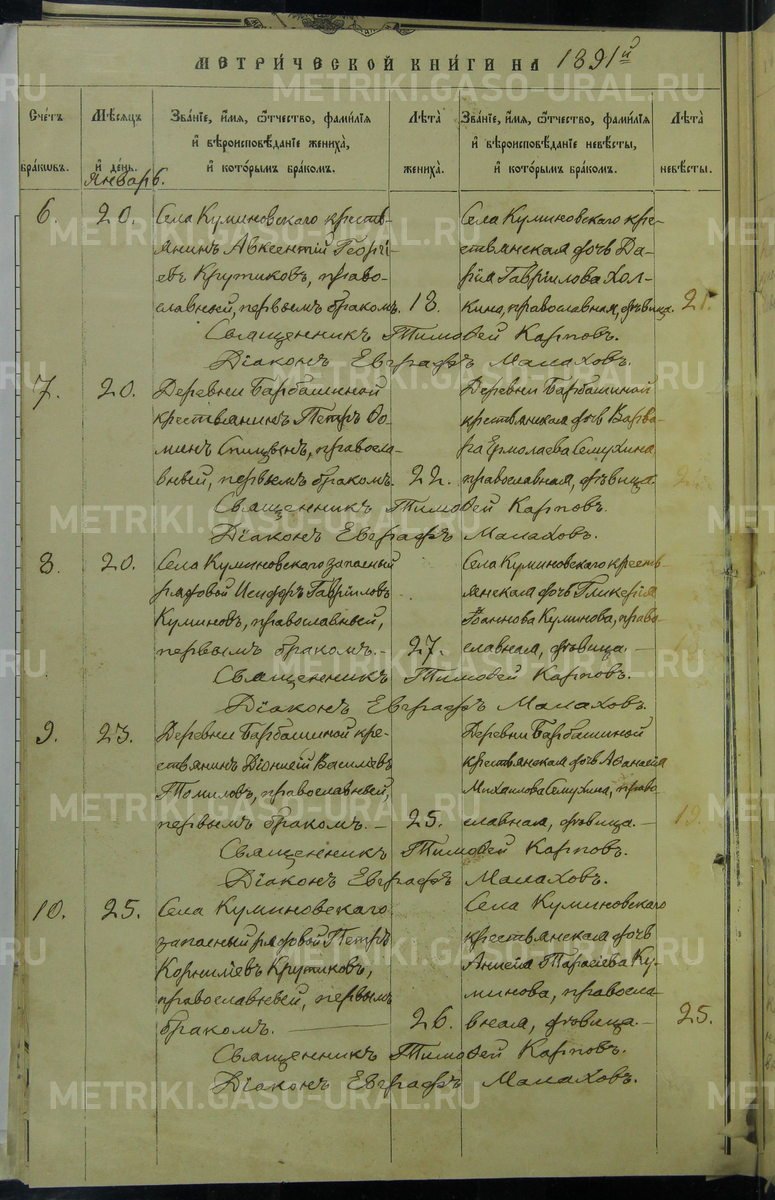 МЕТРИ́ЧЕСКОЙ КНИ́ГИ НА 1891й
Сче́тъ бра́кѡвъ.
Мѣ́сяцъ и҆ де́нь.
Зва́нїе, и҆́мѧ, ѻ҆́тчество, фамѝлїѧ и҆ вѣроисповѣ́данїе жениха̀, и҆ кото́рымъ бра́комъ.
Лѣ́та жениха̀.
Зва́нїе, и҆́мѧ, ѻ҆́тчество, фамѝлїѧ и҆ вѣроисповѣ́данїе невѣ́сты, и҆ кото́рымъ бра́комъ.
Лѣ́та невѣ́сты.
Январь.
6. 20.
Села Куминовскаго кресть-
янинъ Авксентій Георгі-
евъ Крутиковъ, право-
славный, первымъ бракомъ. 18.
Села Куминовскаго кре-
стьянская дочь Да-
рія Гавріилова Хол-
кина, православная, дѣвица. 21.
Священникъ Тимофей Карповъ.
Діаконъ Евграфъ Малаховъ.
7. 20.
Деревни Барбашиной
крестьянинъ Петръ Ѳо-
минъ Спицынъ, правосла-
вный, первымъ бракомъ. 22.
Деревни Барбашиной
крестьянская дочь Варва-
ра Ермолаева Семухина
православная, дѣвица.
Священникъ Тимофей Карповъ.
Діаконъ Евграфъ Малаховъ.
8. 20.
Села Куминовскаго запасный
рядовой Исидоръ Гавріиловъ
Куминовъ, православный,
первымъ бракомъ.- 27.
Села Куминовскаго кресть
янская дочь Гликерія
Іоаннова Куминова, право
славная, дѣвица. -
Священникъ Тимофей Карповъ.
Діаконъ Евграфъ Малаховъ.
9. 23.
Деревни Барбашиной кре-
стьянинъ Діонисій Васильевъ
Томиловъ, православный,
первымъ бракомъ. - 25.
Деревни Барбашиной
крестьянская дочь Аѳанасія
Михаилова Семухина, право
славная, дѣвица. - 19.
Священникъ Тимофей Карповъ.
Діаконъ Евграфъ Малаховъ.
10. 25.
Села Куминовскаго
запасный рядовой Петръ
Корниліевъ Крутиковъ,
православный, первымъ
бракомъ. - 26.
Села Куминовскаго
крестьянская дочь
Анисія Тарасіева Ку-
минова, правосла-
вная, дѣвица. - 25.
Священникъ Тимофей Карповъ.
Діаконъ Евграфъ Малаховъ.
METRIKI.GASO-URAL.RU